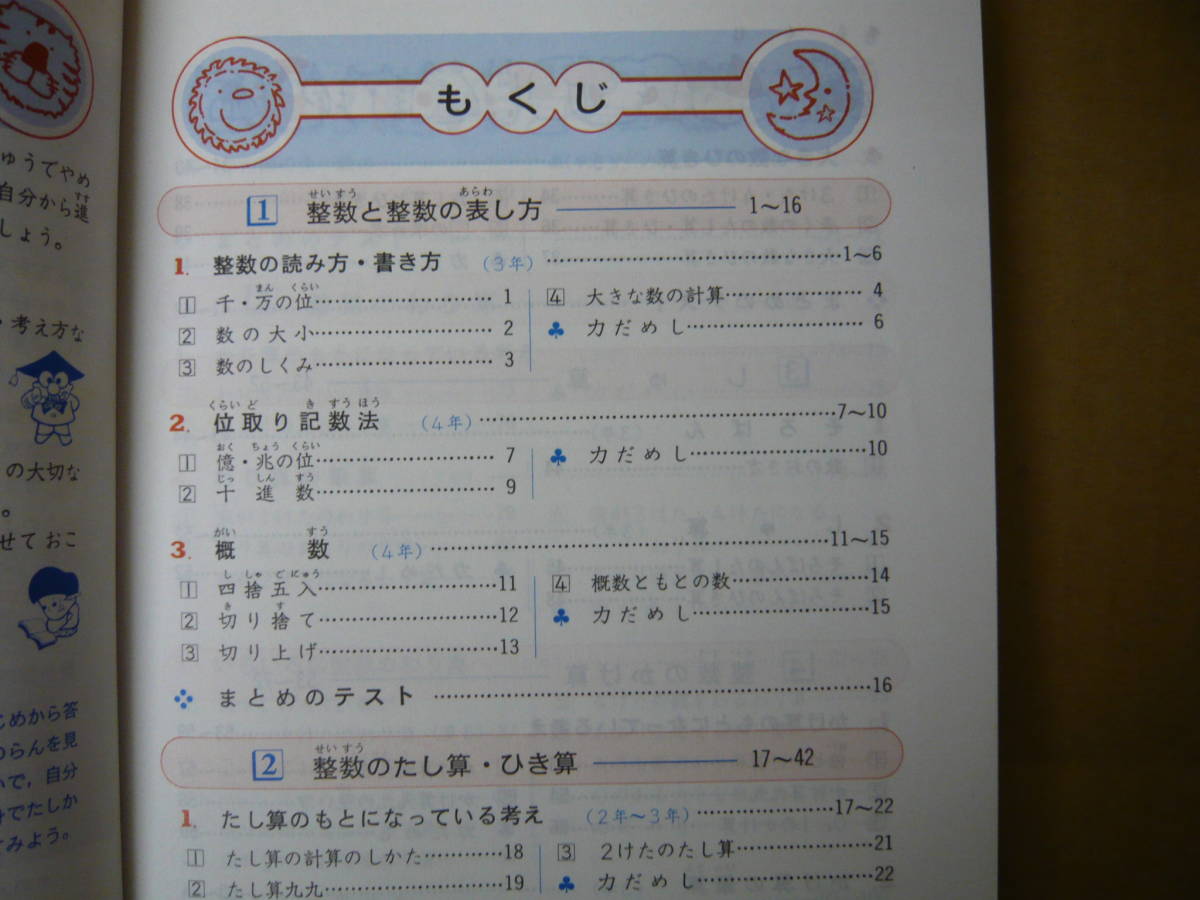 ゅうてやめ
自分から進
しょう。
・考え方な
の大切な
。
せておこ
じめから答
のらんを見
いで，自分
分でたしか
てみよう。
もくじ
1 整数と整数の表し方 1～16
1. 整数の読み方・書き方 (3年) 1～6
1 千・万の位 1
2 数の大小 2
3 数のしくみ 3
4 大きな数の計算 4
♣ 力だめし 6
2. 位取り記数法 (4年) 7～10
1 億・兆の位 7
2 十進数 9
♣ 力だめし 10
3. 概数 (4年) 11～15
1 四捨五入 11
2 切り捨て 12
3 切り上げ 13
4 概数ともとの数 14
♣ 力だめし 15
まとめのテスト 16
2 整数のたし算・ひき算 17～42
1. たし算のもとになっている考え (2年～3年) 17～22
1 たし算の計算のしかた 18
2 たし算九九 19
3 2けたのたし算 21
♣ 力だめし 22